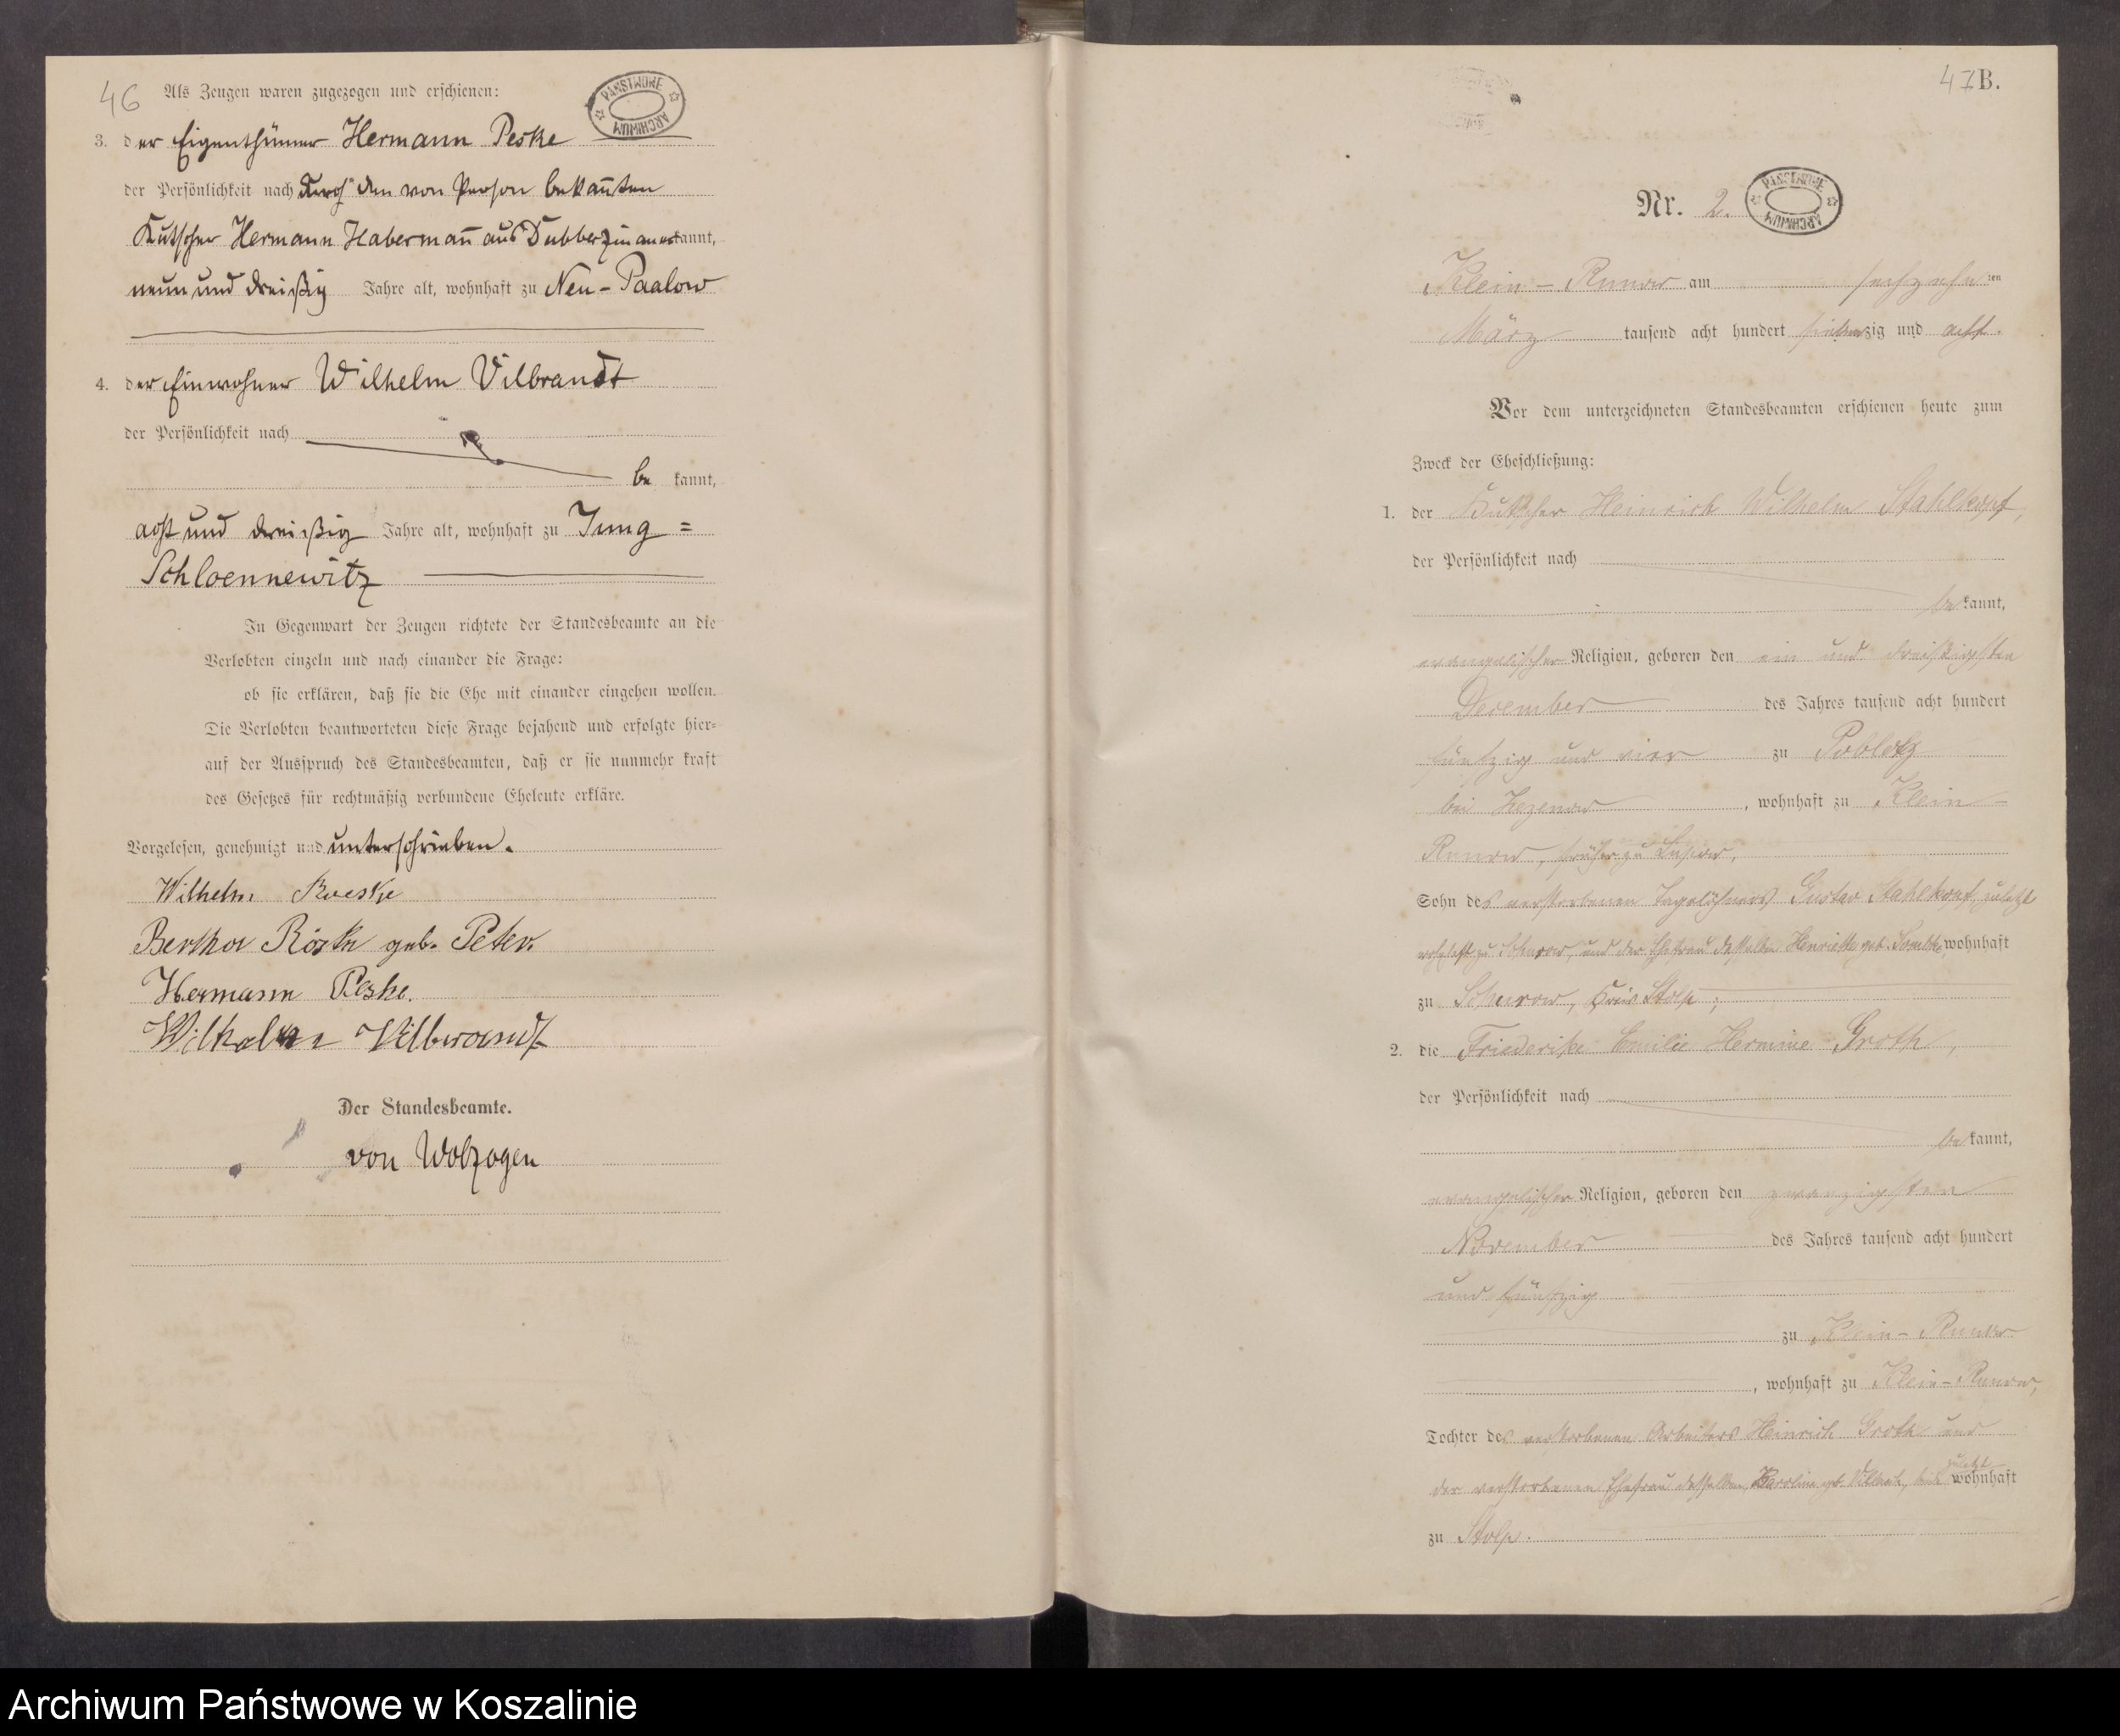 46
Als Zeugen waren zugezogen und erschienen:
PAŃSTWOWE
ARCHIWUM
3. der Eigenthümer Hermann Peske
der Persönlichkeit nach durch den von Person bekannten
Kutscher Hermann Habermann aus Dubberzin anerkannt,
neun und dreißig Jahre alt, wohnhaft zu Neu-Paalow
4. der Einwohner Wilhelm Vilbrandt
der Persönlichkeit nach
be kannt,
acht und dreißig Jahre alt, wohnhaft zu Jung=
Schloennewitz
In Gegenwart der Zeugen richtete der Standesbeamte an die
Verlobten einzeln und nach einander die Frage:
ob sie erklären, daß sie die Ehe mit einander eingehen wollen.
Die Verlobten beantworteten diese Frage bejahend und erfolgte hier=
auf der Ausspruch des Standesbeamten, daß er sie nunmehr kraft
des Gesetzes für rechtmäßig verbundene Eheleute erkläre.
Vorgelesen, genehmigt und unterschrieben.
Wilhelm Roeske
Bertha Röske geb. Peter.
Hermann Peske.
Wilhelm Vilbrandt
Der Standesbeamte.
von Wolzogen
47 B.
Nr. 2.
PAŃSTWOWE
ARCHIWUM
Klein-Runow am sechzehnten
März tausend acht hundert siebenzig und acht.
Vor dem unterzeichneten Standesbeamten erschienen heute zum
Zweck der Eheschließung:
1. der Kutscher Heinrich Wilhelm Stahlkopf,
der Persönlichkeit nach
be kannt,
evangelischer Religion, geboren den ein und dreißigsten
December des Jahres tausend acht hundert
fünfzig und vier zu Poblotz
bei Zezenow, wohnhaft zu Klein-
Runow, früher zu Lupow,
Sohn des verstorbenen Tagelöhners Gustav Stahlkopf, zuletzt
wohnhaft zu Schurow, und der Ehefrau desselben Henriette geb. wohnhaft
zu Schurow, Kreis Stolp;
2. die Friederike Emilie Hermine Groth,
der Persönlichkeit nach
be kannt,
evangelischer Religion, geboren den zwanzigsten
November des Jahres tausend acht hundert
und fünfzig
zu Klein-Runow
, wohnhaft zu Klein-Runow,
Tochter des verstorbenen Arbeiters Heinrich Groth und
der verstorbenen Ehefrau desselben, Karoline geb. zuletzt wohnhaft
zu Stolp.
Archiwum Państwowe w Koszalinie